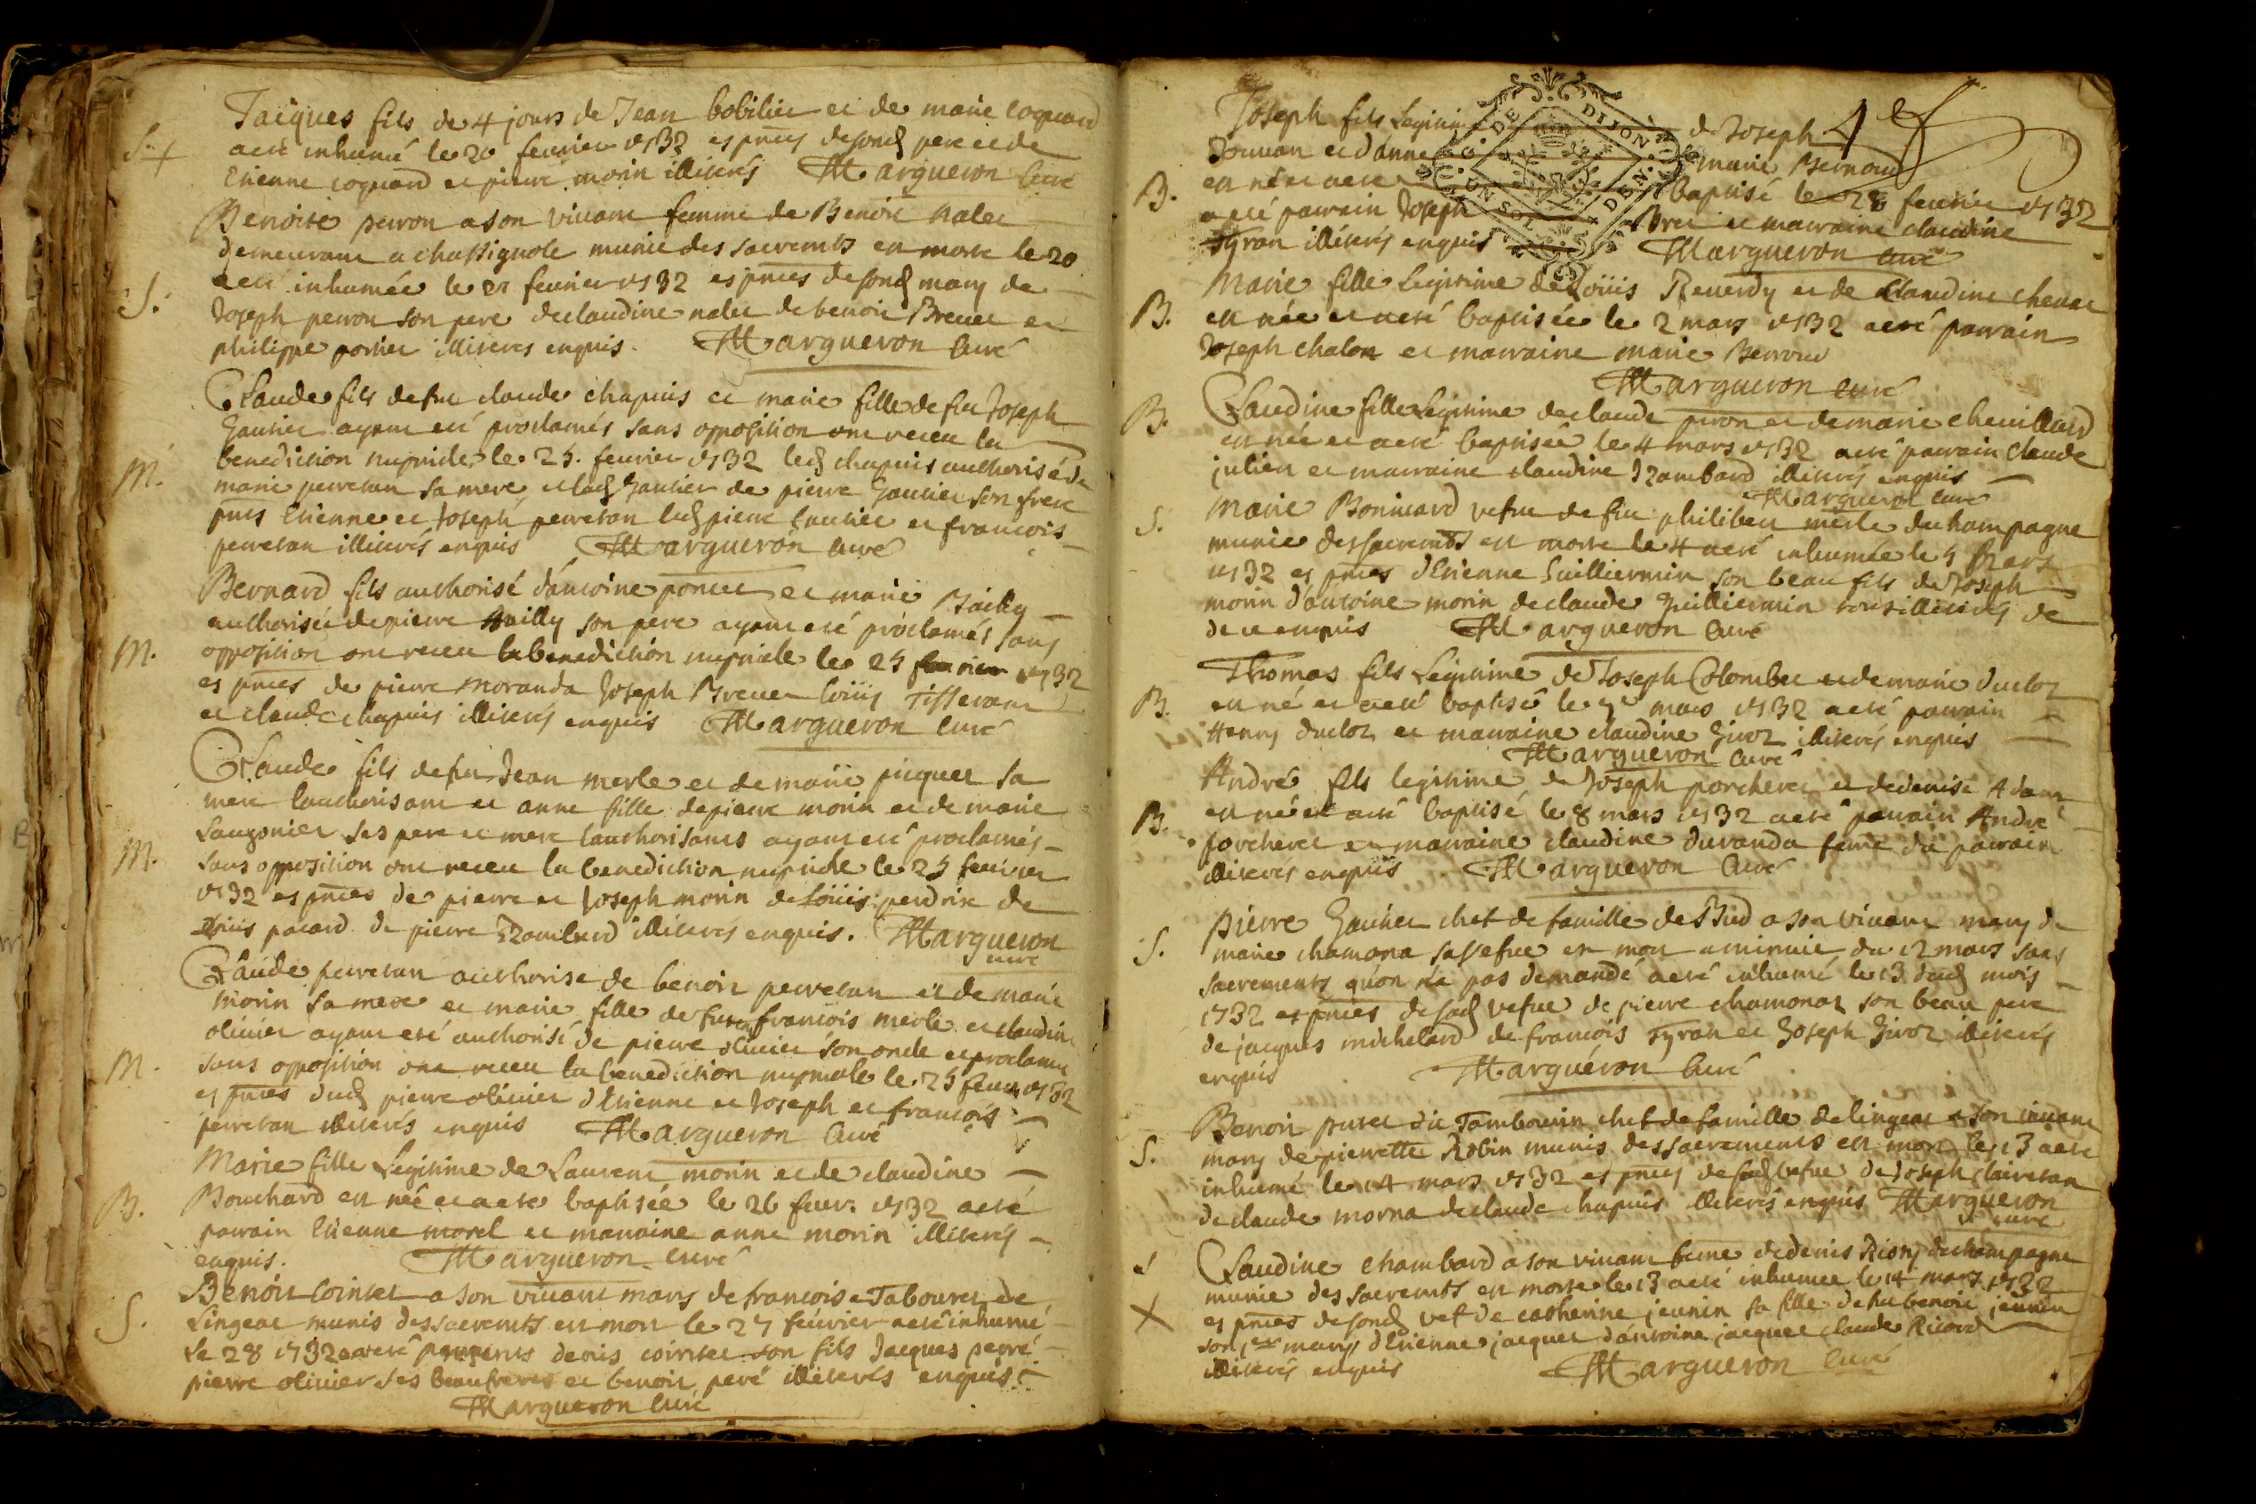 Jacques fils de 4 jours de Jean bobilier et de marie coquard
S. +
a eté inhumé le 20 feurier 1732 es pnces desond pere et de
Etienne coquard et pierre morin illiterés Margueron Curé
Benoite perron a son viuant femme de Benoit nalet
demeurant a chassignole munie des sacremts est morte le 20
S.
a eté inhumée le 21 feurier 1732 es pnces desond mary de
Joseph perron son pere de claudine nalet de benoit Breuet et
philippe portier illiteres enquis. Margueron Curé
Claude fils de feu claude chapuis et marie fille de feu Joseph
Gautier ayant eté proclamés sans opposition ont receu la
M.
benediction nuptiale le 25. feurier 1732 led chapuis authorisé de
marie perretan sa mere et lad Gautier de pierre Gautier son frere
pnts Etienne et Joseph perretan led pierre Gautier et francois
perretan illiterés enquis Margueron Curé
Bernard fils authorisé d'antoine poncet et marie Bailly
authorisée de pierre Bailly son pere ayant eté proclamés sans
M.
opposition ont receu la benediction nuptiale le 25 feurier 1732
es pnces de pierre moranda Joseph Breuet loüis Tisserant
et claude chapuis illiterés enquis Margueron Curé
Claude fils de feu Jean merle et de marie picquet sa
mere lauthorisant et anne fille de pierre morin et de marie
Sauzonier ses pere et mere lauthorisants ayant eté proclamés
M.
sans opposition ont receu la benediction nuptiale le 25 feurier
1732 es pnces de pierre et Joseph morin de loüis perdrix de
pacard de pierre Rambard illiterés enquis. Margueron
curé
Claude perretan authorise de benoit perretan et de marie
morin sa mere et marie fille de furent francois merle et claudine
olivier ayant eté authorisé de pierre olivier son oncle et proclamés
M.
sans opposition ont receu la benediction nuptiale le 25 feurier 1732
es pnces dud pierre olivier d'Etienne et Joseph et francois
perretan illiterés enquis Margueron Curé
Marie fille Legitime de Laurent morin et de claudine
B.
Bouchard est née et a eté baptisée le 26 feur. 1732 a eté
parrain Etienne morel et marraine anne morin illiterés
enquis. Margueron curé
Benoit Cointet a son viuant mary de francoise Tabouret de
S.
Lingeat munis des sacremts est mort le 27 féurier a eté inhumé
le 28 1732 presents denis cointet son fils Jacques perré
pierre olivier ses beaufreres et benoit peré illiterés enquis
Margueron Curé
Joseph fils Legitime de Joseph
et d'anne marie Bernoud
B.
est né et a eté baptisé le 28 feurier 1732
a eté parrain Joseph Bret et marraine claudine
Syran illiterés enquis Margueron curé
G. DE DIJON
UN SOL
Marie fille Legitime de Loüis Reuerdy et de Claudine cheuat
B.
est née et a eté baptisée le 2 mars 1732 a eté parrain
Joseph chalon et marraine marie Bernoud
Margueron curé
B.
Claudine fille Legitime de claude piron et de marie cheuillard
est née et a eté baptiseé le 4 mars 1732 a eté parrain Claude
julien et marraine claudine Rambard illiterés enquis
Margueron curé
S.
Marie Bonniard vefue de feu philibert merle de champagne
munie des sacremts est morte le 4 a eté inhumée le 5 Mars
1732 es pnces d'Etienne Guilliermin son beau fils de Joseph
morin d'antoine morin de claude Guilliermin tous illiterés de
de ce enquis Margueron Curé
Thomas fils Legitime de Joseph Colombet et de marie ductoz
B.
est né et a eté baptisé le mars 1732 a eté parrain
Henry ductoz et marraine claudine Giroz illiterés enquis
Margueron Curé
André fils legitime de Joseph porcheret et de denise Adam
B.
est né et a eté baptisé le 8 mars 1732 a eté parrain André
porcheret et marraine claudine duranda feme du parrain
illiterés enquis Margueron Curé
pierre Gautier chef de famille de a son viuant mary de
S.
marie chamona sa vefue est mort a minuit du 12 mars sans
sacrements qu'on n'a pas demandé a eté inhumé le 13 dud mois
1732 es pnces de sad vefue de pierre chamonaz son beau pere
de jacques michelard de francois syran et Joseph Giroz illiterés
enquis Margueron Curé
Benoit puret dit Tambourin chef de famille de lingeat a son viuant
S.
mary de pierrette Robin munis des sacrements est mort le 13 a eté
inhumé le 14 mars 1732 es pnces de sad vefue de Joseph clairetan
de claude morna de claude chapuis illiterés enquis Margueron
curé
S
Claudine chambard a son viuant feme de denis Riony de champagne
munie des sacremts est morte le 13 a eté inhumee le 14 mars 1732
X
es pnces de sond vef de catherine jeunin sa fille de feu benoit jeunin
son 1er mary d'Etienne jacquet d'antoine jacquet claude Ricard
illiterés enquis Margueron Curé